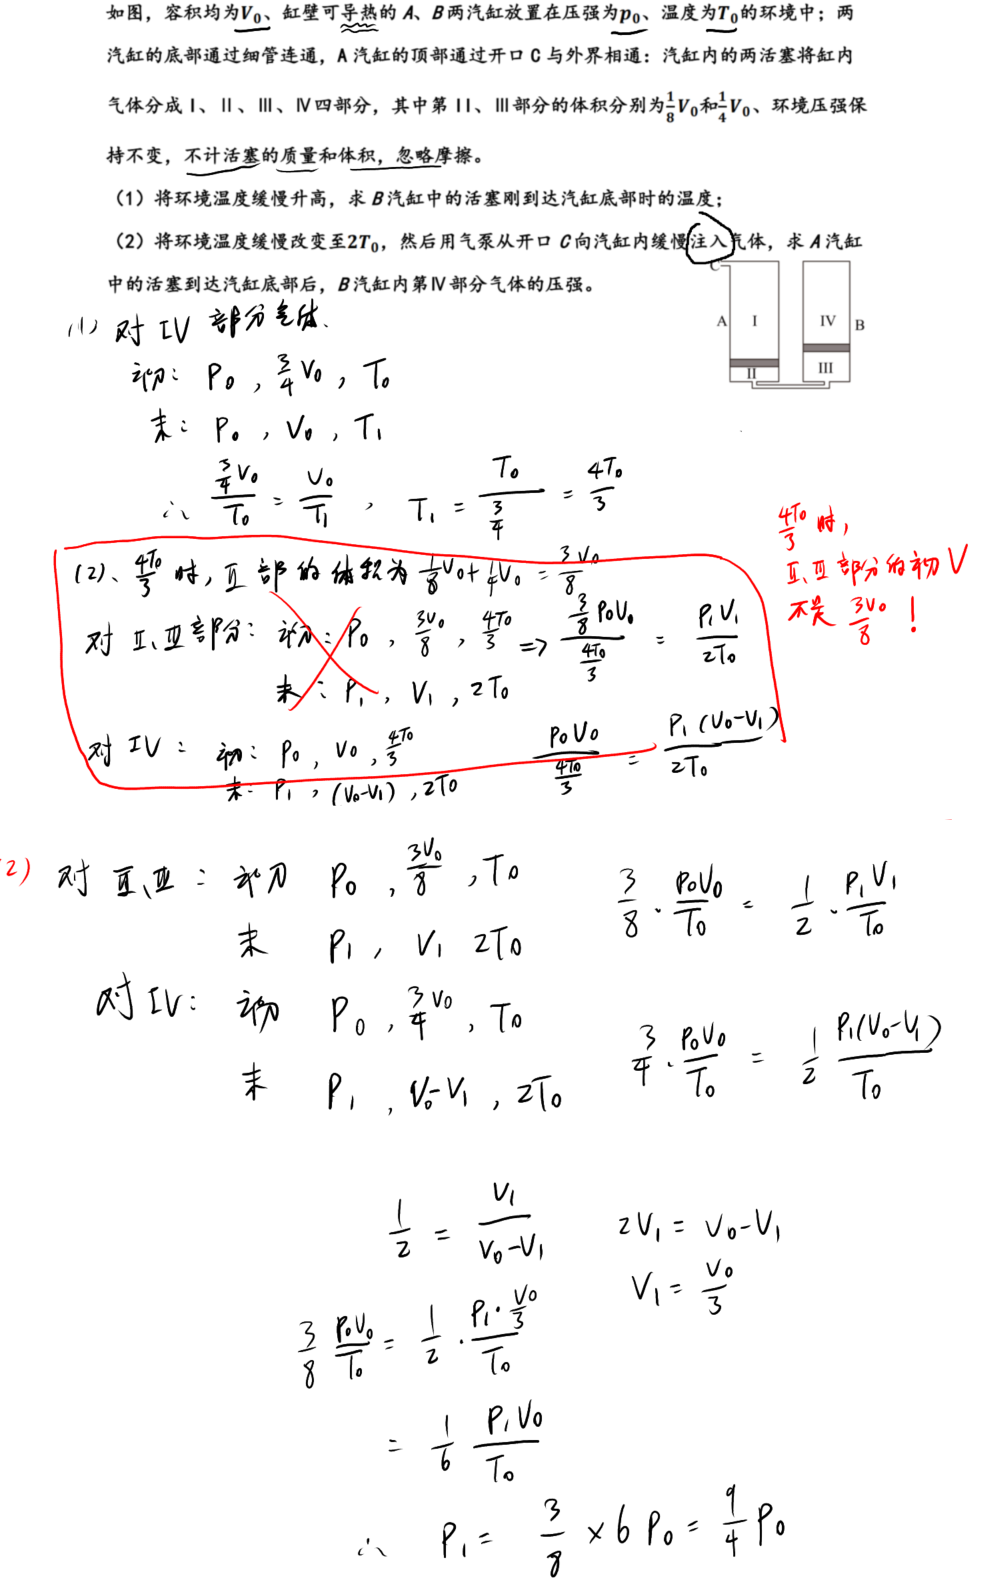 如图，容积均为V₀、缸壁可导热的 A、B两汽缸放置在压强为p₀、温度为T₀的环境中；两
汽缸的底部通过细管连通，A 汽缸的顶部通过开口 C 与外界相通：汽缸内的两活塞将缸内
气体分成 I、II、III、IV四部分，其中第 II、III部分的体积分别为1/8V₀和1/4V₀、环境压强保
持不变，不计活塞的质量和体积，忽略摩擦。
（1）将环境温度缓慢升高，求 B汽缸中的活塞刚到达汽缸底部时的温度；
（2）将环境温度缓慢改变至2T₀，然后用气泵从开口 C向汽缸内缓慢注入气体，求 A汽缸
中的活塞到达汽缸底部后，B汽缸内第IV部分气体的压强。
C
A I IV B
II III
(1) 对 IV 部分气体.
初: P₀ , 3/4 V₀ , T₀
末: P₀ , V₀ , T₁
∴ (3/4 V₀)/T₀ = V₀/T₁ , T₁ = T₀/(3/4) = 4T₀/3
4T₀/3 时,
II、III 部分的初 V
不是 3V₀/8 !
(2)、4T₀/3 时, II 部的体积为 1/8 V₀ + 1/4 V₀ = 3V₀/8
对 II、III 部分: 初: P₀ , 3V₀/8 , 4T₀/3 => (3/8 P₀V₀)/(4T₀/3) = P₁V₁/2T₀
末: P₁ , V₁ , 2T₀
对 IV: 初: P₀ , V₀ , 4T₀/3 P₀V₀/(4T₀/3) = P₁(V₀-V₁)/2T₀
末: P₁ , (V₀-V₁) , 2T₀
(2) 对 II、III : 初 P₀ , 3V₀/8 , T₀ 3/8 · P₀V₀/T₀ = 1/2 · P₁V₁/T₀
末 P₁ , V₁ 2T₀
对 IV: 初 P₀ , 3/4 V₀ , T₀ 3/4 · P₀V₀/T₀ = 1/2 P₁(V₀-V₁)/T₀
末 P₁ , V₀-V₁ , 2T₀
1/2 = V₁/(V₀-V₁) 2V₁ = V₀-V₁
V₁ = V₀/3
3/8 P₀V₀/T₀ = 1/2 · (P₁·V₀/3)/T₀
= 1/6 P₁V₀/T₀
∴ P₁ = 3/8 × 6 P₀ = 9/4 P₀